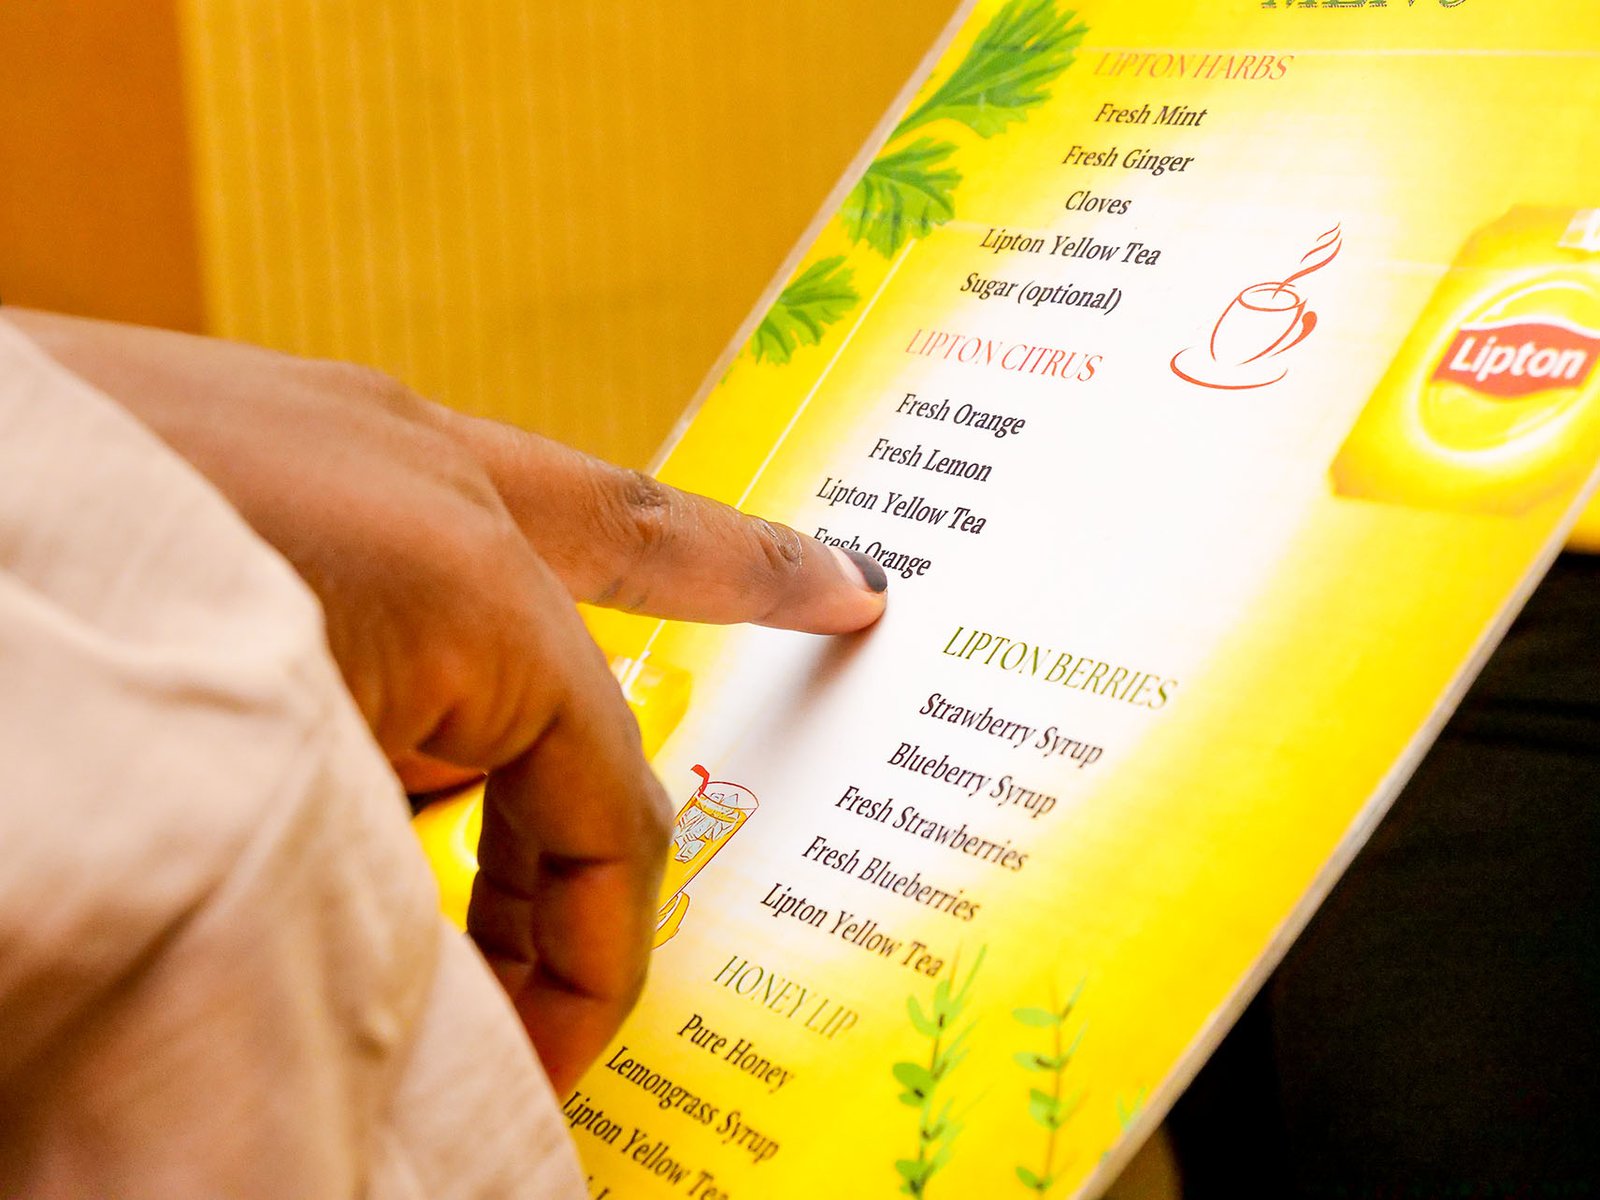 MENU
LIPTON HARBS
Fresh Mint
Fresh Ginger
Cloves
Lipton Yellow Tea
Sugar (optional)
Lipton
LIPTON CITRUS
Fresh Orange
Fresh Lemon
Lipton Yellow Tea
Fresh Orange
LIPTON BERRIES
Strawberry Syrup
Blueberry Syrup
Fresh Strawberries
Fresh Blueberries
Lipton Yellow Tea
HONEY LIP
Pure Honey
Lemongrass Syrup
Lipton Yellow Tea